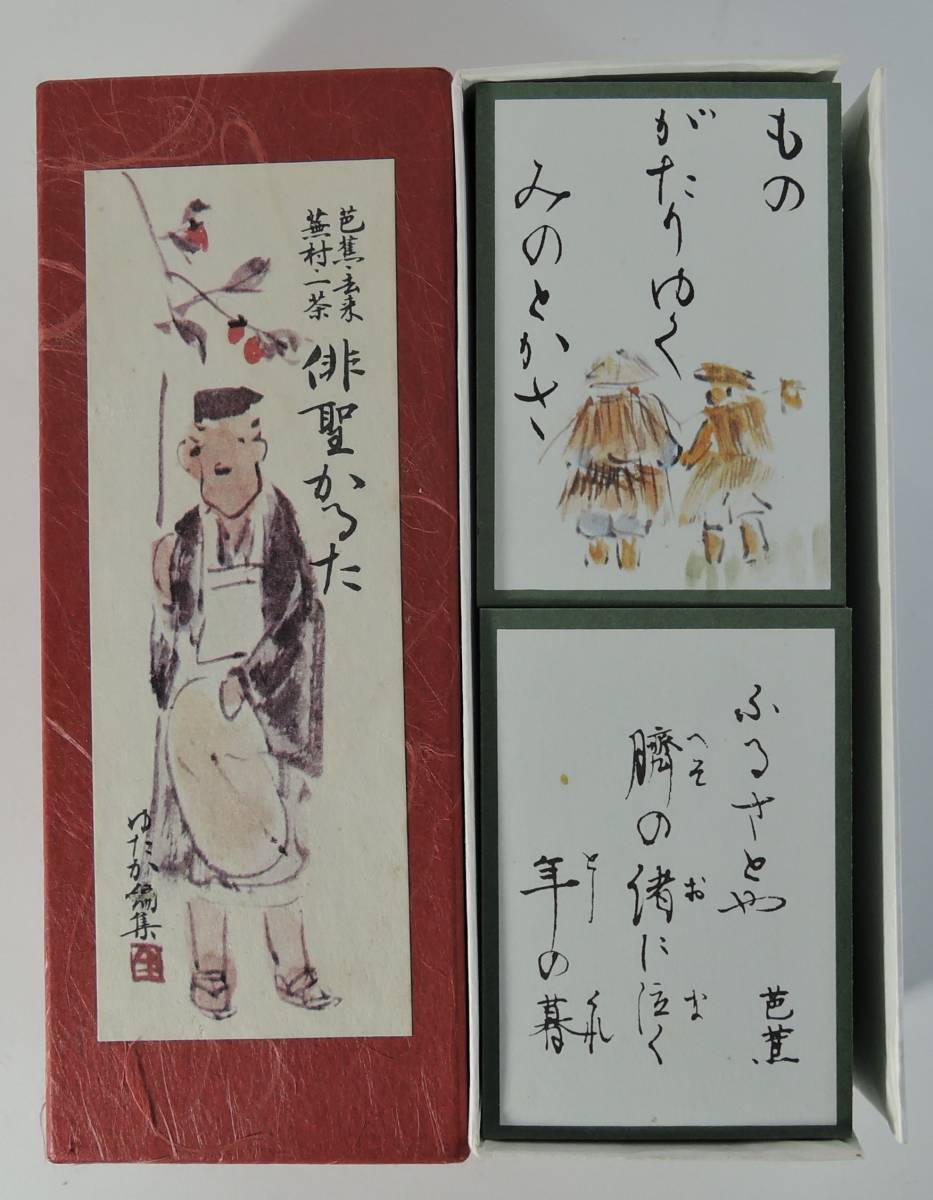 芭蕉・去来
蕪村・一茶
俳聖かるた
ゆたか編集
もの
がたりゆく
みのとかさ
芭蕉
ふるさとや
へそ お な
臍の緒に泣く
とし くれ
年の暮